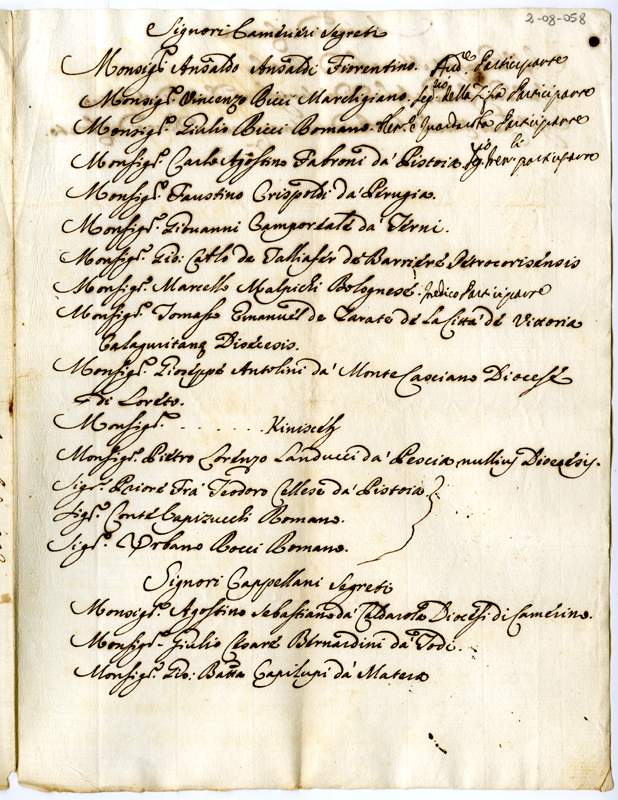 2-08-058
Signori Camerieri Segreti
Monsigr. Ansaldo Ansaldi Fiorentino. Aud.re Participante
Monsigr. Vincenzo Ricci Marchigiano. Seg.rio della Participante
Monsigr. Giulio Ricci Romano. Participante
Monsigr. Carlo Agostino Fabroni da' Pistoia participante
Monsigr. Faustino Crispoldi da' Perugia.
Monsigr. Giovanni Camporeale da' Terni.
Monsigr. Gio: Carlo de Talliafer de Barriere Petrocorisensis
Monsigr. Marcello Malpichi Bolognese. Medico Participante
Monsigr. Tomasso Emanuel de Zarate de La Città de Victoria
Calaguritanę Diocesis.
Monsigr. Gioseppe Antolini da' Monte Casciano Diocese
di Loreto.
Monsigr. . . . . . . . Kinisech
Monsigr. Pietro Lorenzo Landucci da' Pescia nullius Diocesis.
Sigr. Priore Frà Teodoro Cellese da' Pistoia
Sigr. Conte Capizucchi Romano.
Sigr. Urbano Rocci Romano.
Signori Cappellani Segreti
Monsigr. Agostino Sebastiano da' Caldarola Diocesi di Camerino.
Monsigr. Giulio Cesare Bernardini da' Todi.
Monsigr. Gio: Batta Capilupi da' Matera